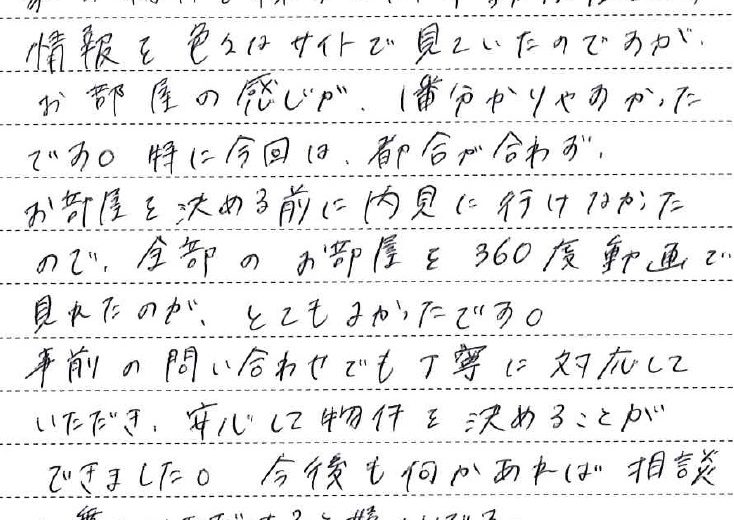 情報を色々なサイトで見ていたのですが、
お部屋の感じが、1番分かりやすかった
です。特に今回は、都合が合わず、
お部屋を決める前に内見に行けなかった
ので、全部のお部屋を360度動画で
見れたのが、とてもよかったです。
事前の問い合わせでも丁寧に対応して
いただき、安心して物件を決めることが
できました。今後も何かあれば相談